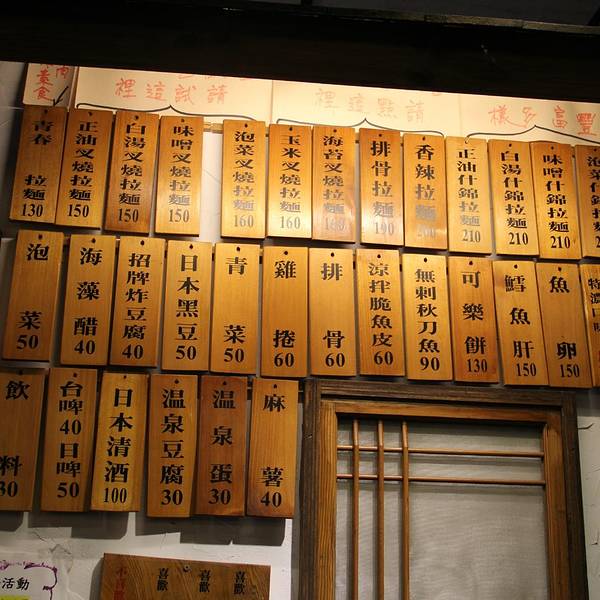 素食
請試這裡
請點這裡
豐富多樣
青春拉麵 130
正油叉燒拉麵 150
白湯叉燒拉麵 150
味噌叉燒拉麵 150
泡菜叉燒拉麵 160
玉米叉燒拉麵 160
海苔叉燒拉麵 160
排骨拉麵 190
香辣拉麵
正油什錦拉麵 210
白湯什錦拉麵 210
味噌什錦拉麵 210
泡菜什錦拉麵
泡菜 50
海藻醋 40
招牌炸豆腐 40
日本黑豆 50
青菜 50
雞捲 60
排骨 60
涼拌脆魚皮 60
無刺秋刀魚 90
可樂餅 130
鱈魚肝 150
魚卵 150
特濃口味
飲料 30
台啤 40 日啤 50
日本清酒 100
溫泉豆腐 30
溫泉蛋 30
麻薯 40
活動
不喜歡
喜歡
喜歡
喜歡